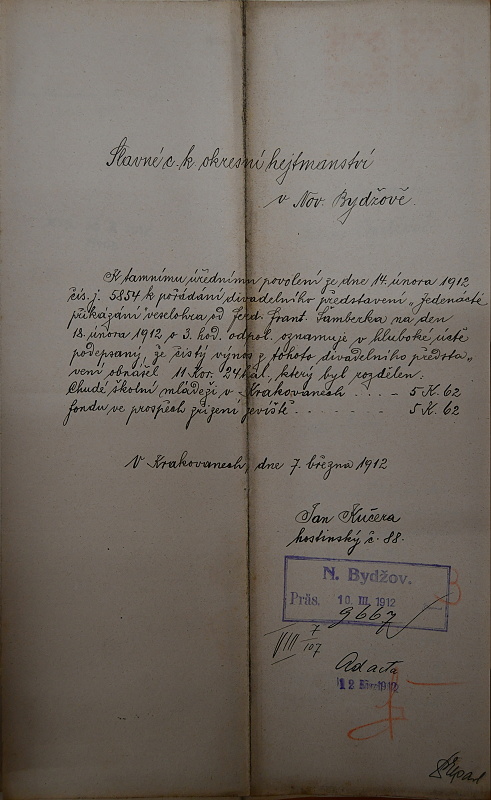 Slavné c. k. okresní hejtmanství
v Nov. Bydžově.
K tamnímu úřednímu povolení ze dne 14. února 1912
čís. j. 5854 k pořádání divadelního představení „Jedenácté
přikázání" veselohra od Ferd. Frant. Šamberka na den
18. února 1912 o 3. hod. odpol. oznamuje v hluboké úctě
podepsaný, že čistý výnos z tohoto divadelního předsta„
vení obnášel 11 Kor. 24 hal. který byl rozdělen:
Chudé školní mládeži v Krakovanech . . . . - 5 K. 62
fondu ve prospěch zřízení jeviště . . - . . . . . - 5 K. 62
V Krakovanech, dne 7. března 1912
Jan Kučera
hostinský č. 88.
N. Bydžov.
Präs. 10. III. 1912
9667
VIII 7/107
Ad acta
12 1912